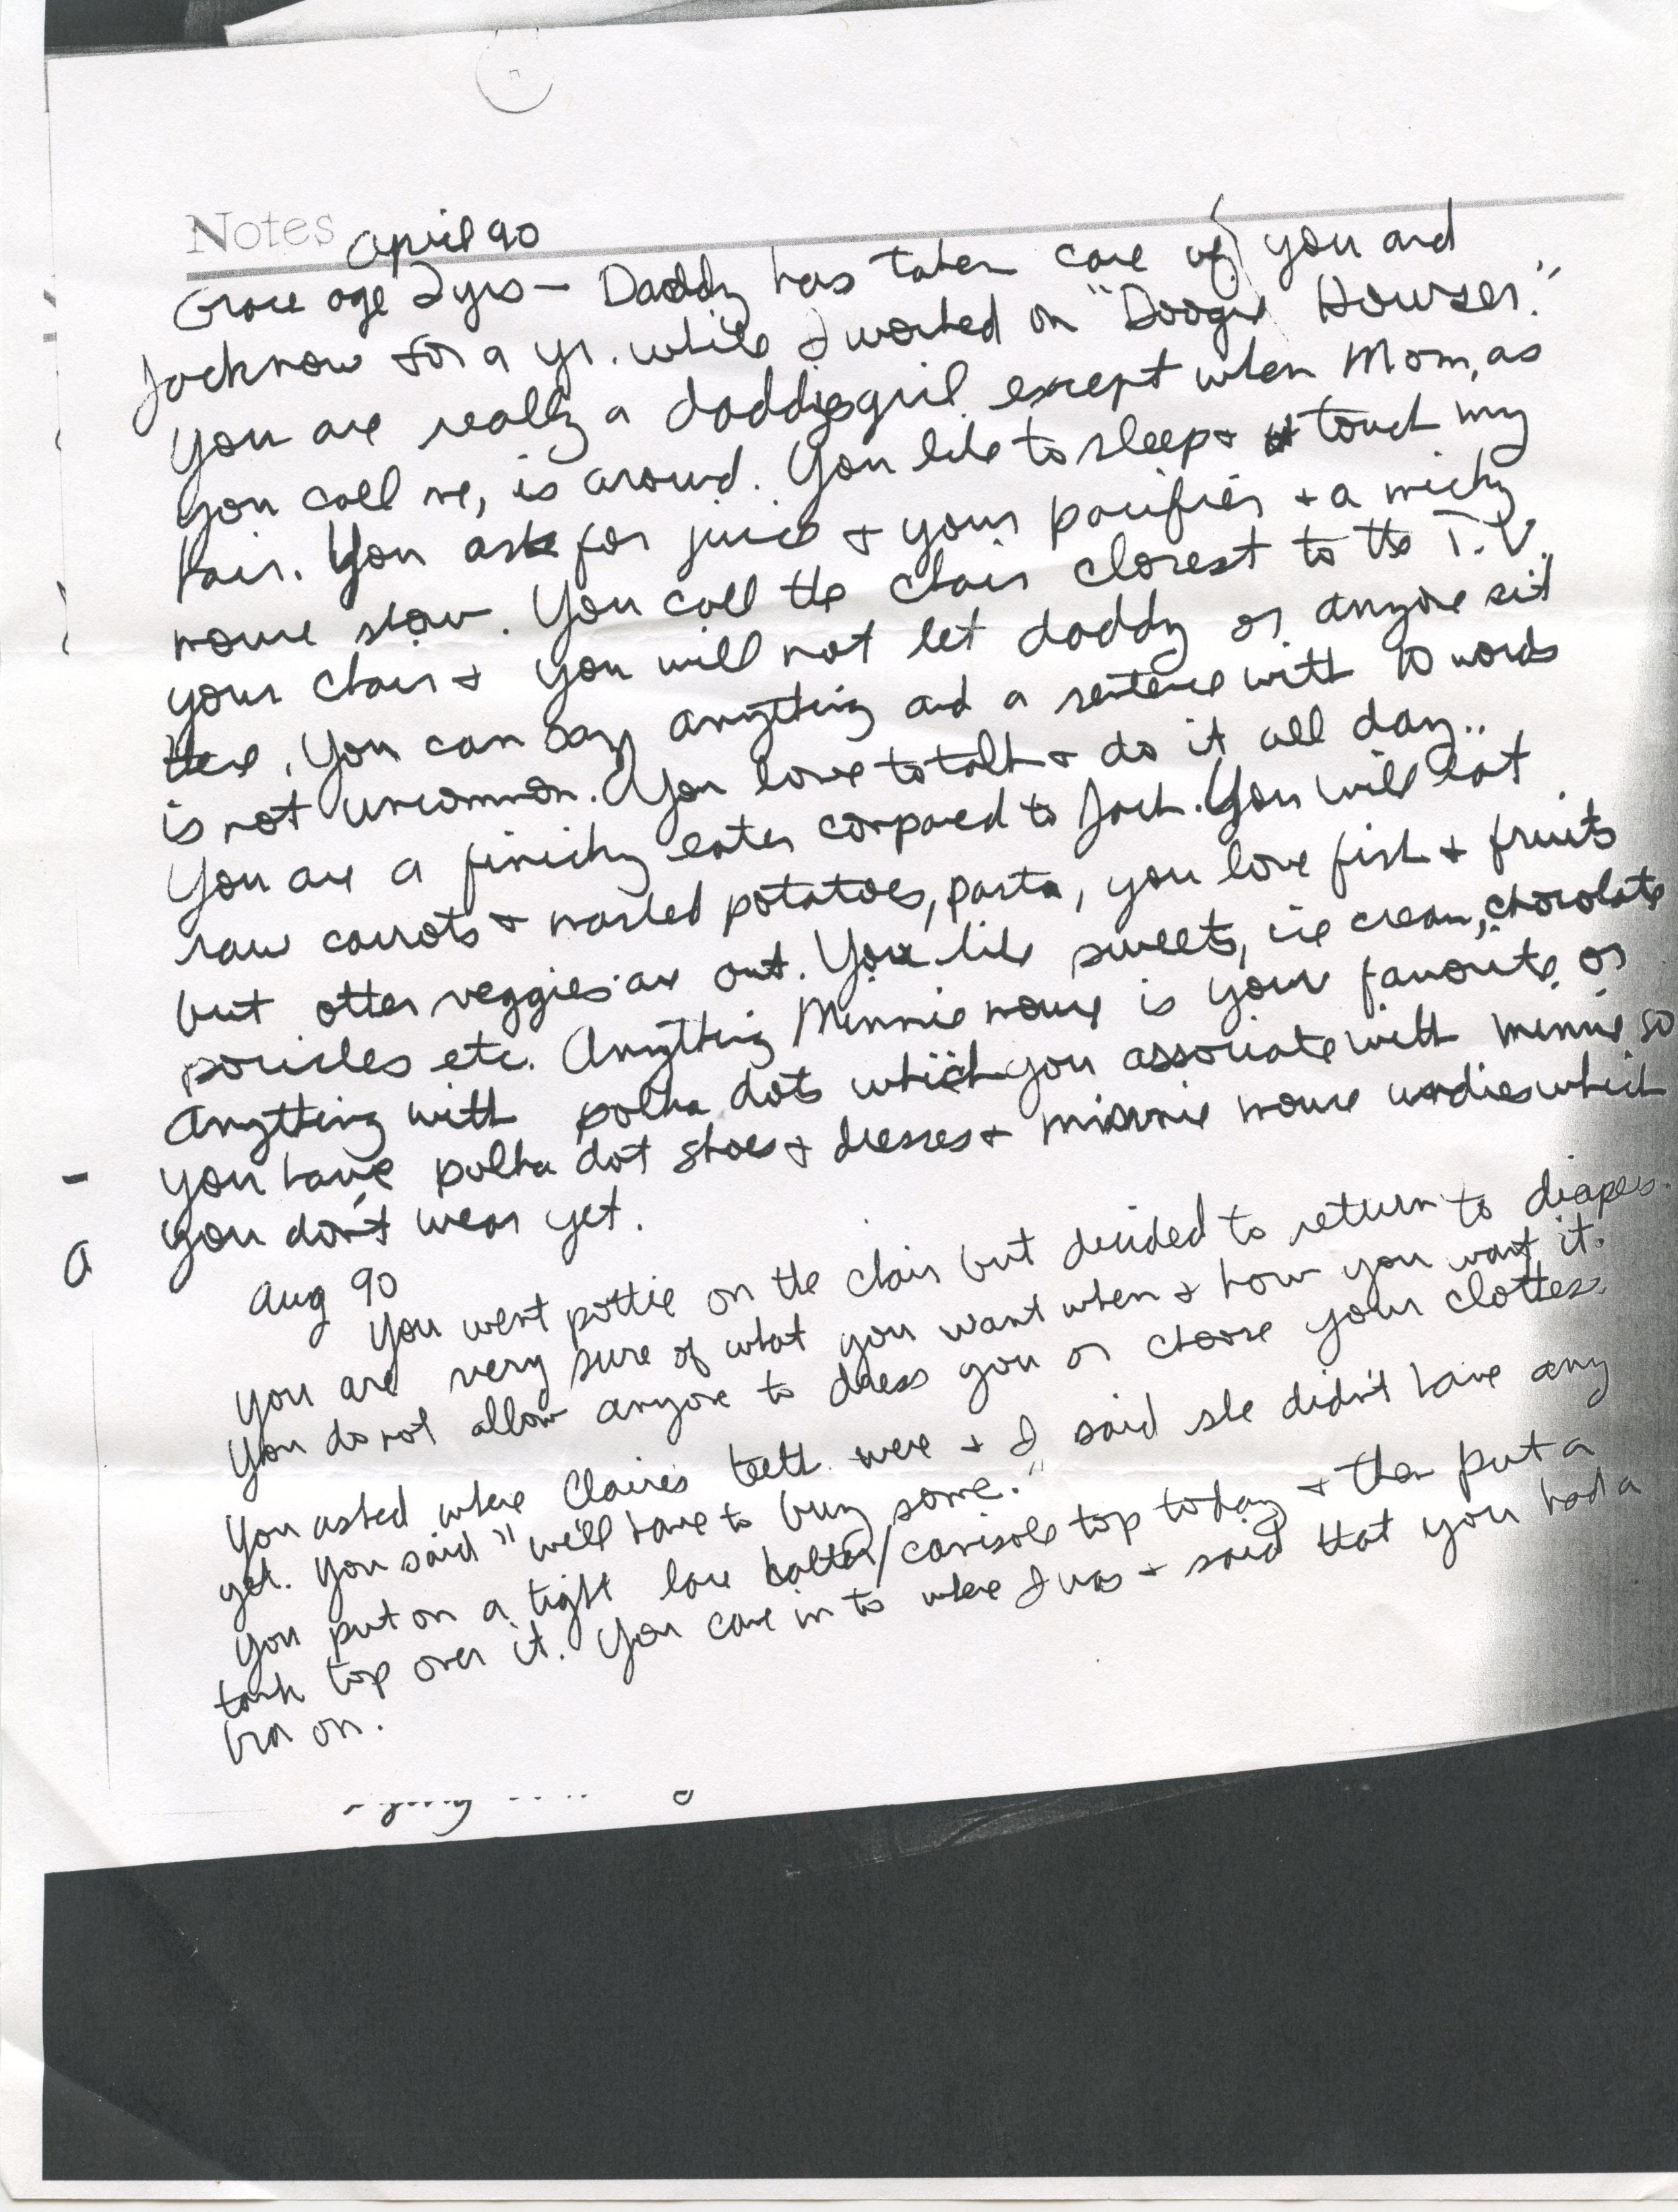 Notes
April 90
Grace age 2yrs — Daddy has taken care of you and
Jack now for a yr. while I worked on "Doogie Howser."
You are really a daddiesgirl except when Mom, as
you call me, is around. You like to sleep & touch my
hair. You ask for juice & your pacifier & a micky
mouse show. You call the chair closest to the T.V.
your chair & you will not let daddy or anyone sit
there. You can say anything and a sentence with 10 words
is not uncommon. You love to talk & do it all day..
You are a finicky eater compared to Jack. You will eat
raw carrots & mashed potatoes, pasta, you love fish & fruits
but other veggies are out. You like sweets, ice cream, chocolate
posicles etc. Anything Minnie mouse is your favorite, or
anything with polka dots which you associate with minnie so
you have polka dot shoes & dresses & minnie mouse undies which
you don't wear yet.
Aug 90
You went pottie on the chair but decided to return to diapers.
You are very sure of what you want when & how you want it.
You do not allow anyone to dress you or choose your clothes.
You asked where Claire's teeth were & I said she didn't have any
yet. You said "we'll have to buy some."
You put on a tight lace halter/camisole top today & then put a
tank top over it. You came in to where I was & said that you had a
bra on.